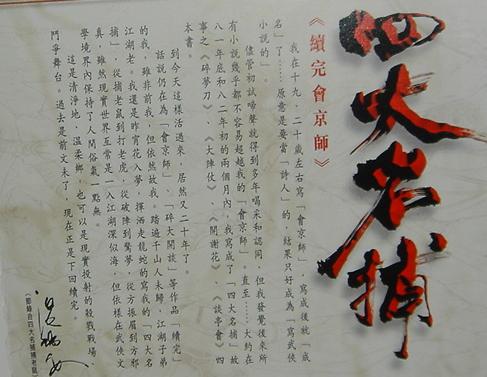 四大名捕
《續完會京師》
我在十九、二十歲左右寫「會京師」，寫成後就「成
名」了……原意是要當「詩人」的，結果只好成為「寫武俠
小說的」。
儘管初試啼聲就得到多年喝采和認同，但我發覺後來所
有小說幾乎都不容易超越我的「會京師」。直至……大約在
八一年底和八二年初的兩個月內，我寫成了「四大名捕」故
事之《碎夢刀》、《大陣仗》、《開謝花》、《談亭會》四
本書。
到今天這樣活過來，居然又二十年了。
話說仍在為「會京師」、「碎大開談」等作品「續完」
的我，雖非前我，但依然故我。踏遍千山人未歸，江湖子弟
江湖老。我還是昨宵花入夢，揮洒走龍蛇的寫我的「四大名
捕」，從捕老鼠到打老虎，從破陣到驚夢，從方振眉到方邪
真，雖然現實世界至常是一入江湖深似海，但依樣在武俠文
學境界內保持了人間俗氣一點無。
這是清淨地，溫柔鄉，也可以是現實投射的殺戮戰場、
鬥爭舞台。過去是前文未了，現在正是下回續完。
(節錄自四大名捕捕老鼠)